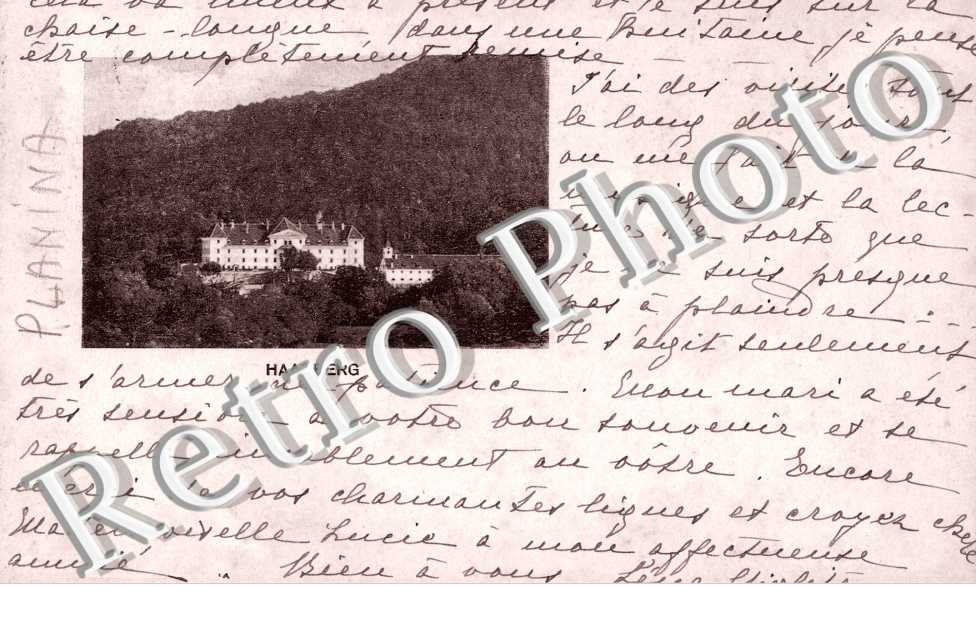 cela va mieux à présent et je suis sur la
chaise-longue dans une huitaine je pense
être complètement remise
J'ai des visites tous
le long du jour,
on me fait de la
musique et la lec-
ture de sorte que
je ne suis presque
pas à plaindre.-
Il s'agit seulement
PLANINA
HAASBERG
de s'armer de patience. Mon mari a été
très sensible à votre bon souvenir et se
rappelle aimablement au vôtre. Encore
merci de vos charmantes lignes et croyez chère
Mademoiselle Lucie à mon affectueuse
amitié Bien à vous
Retro Photo